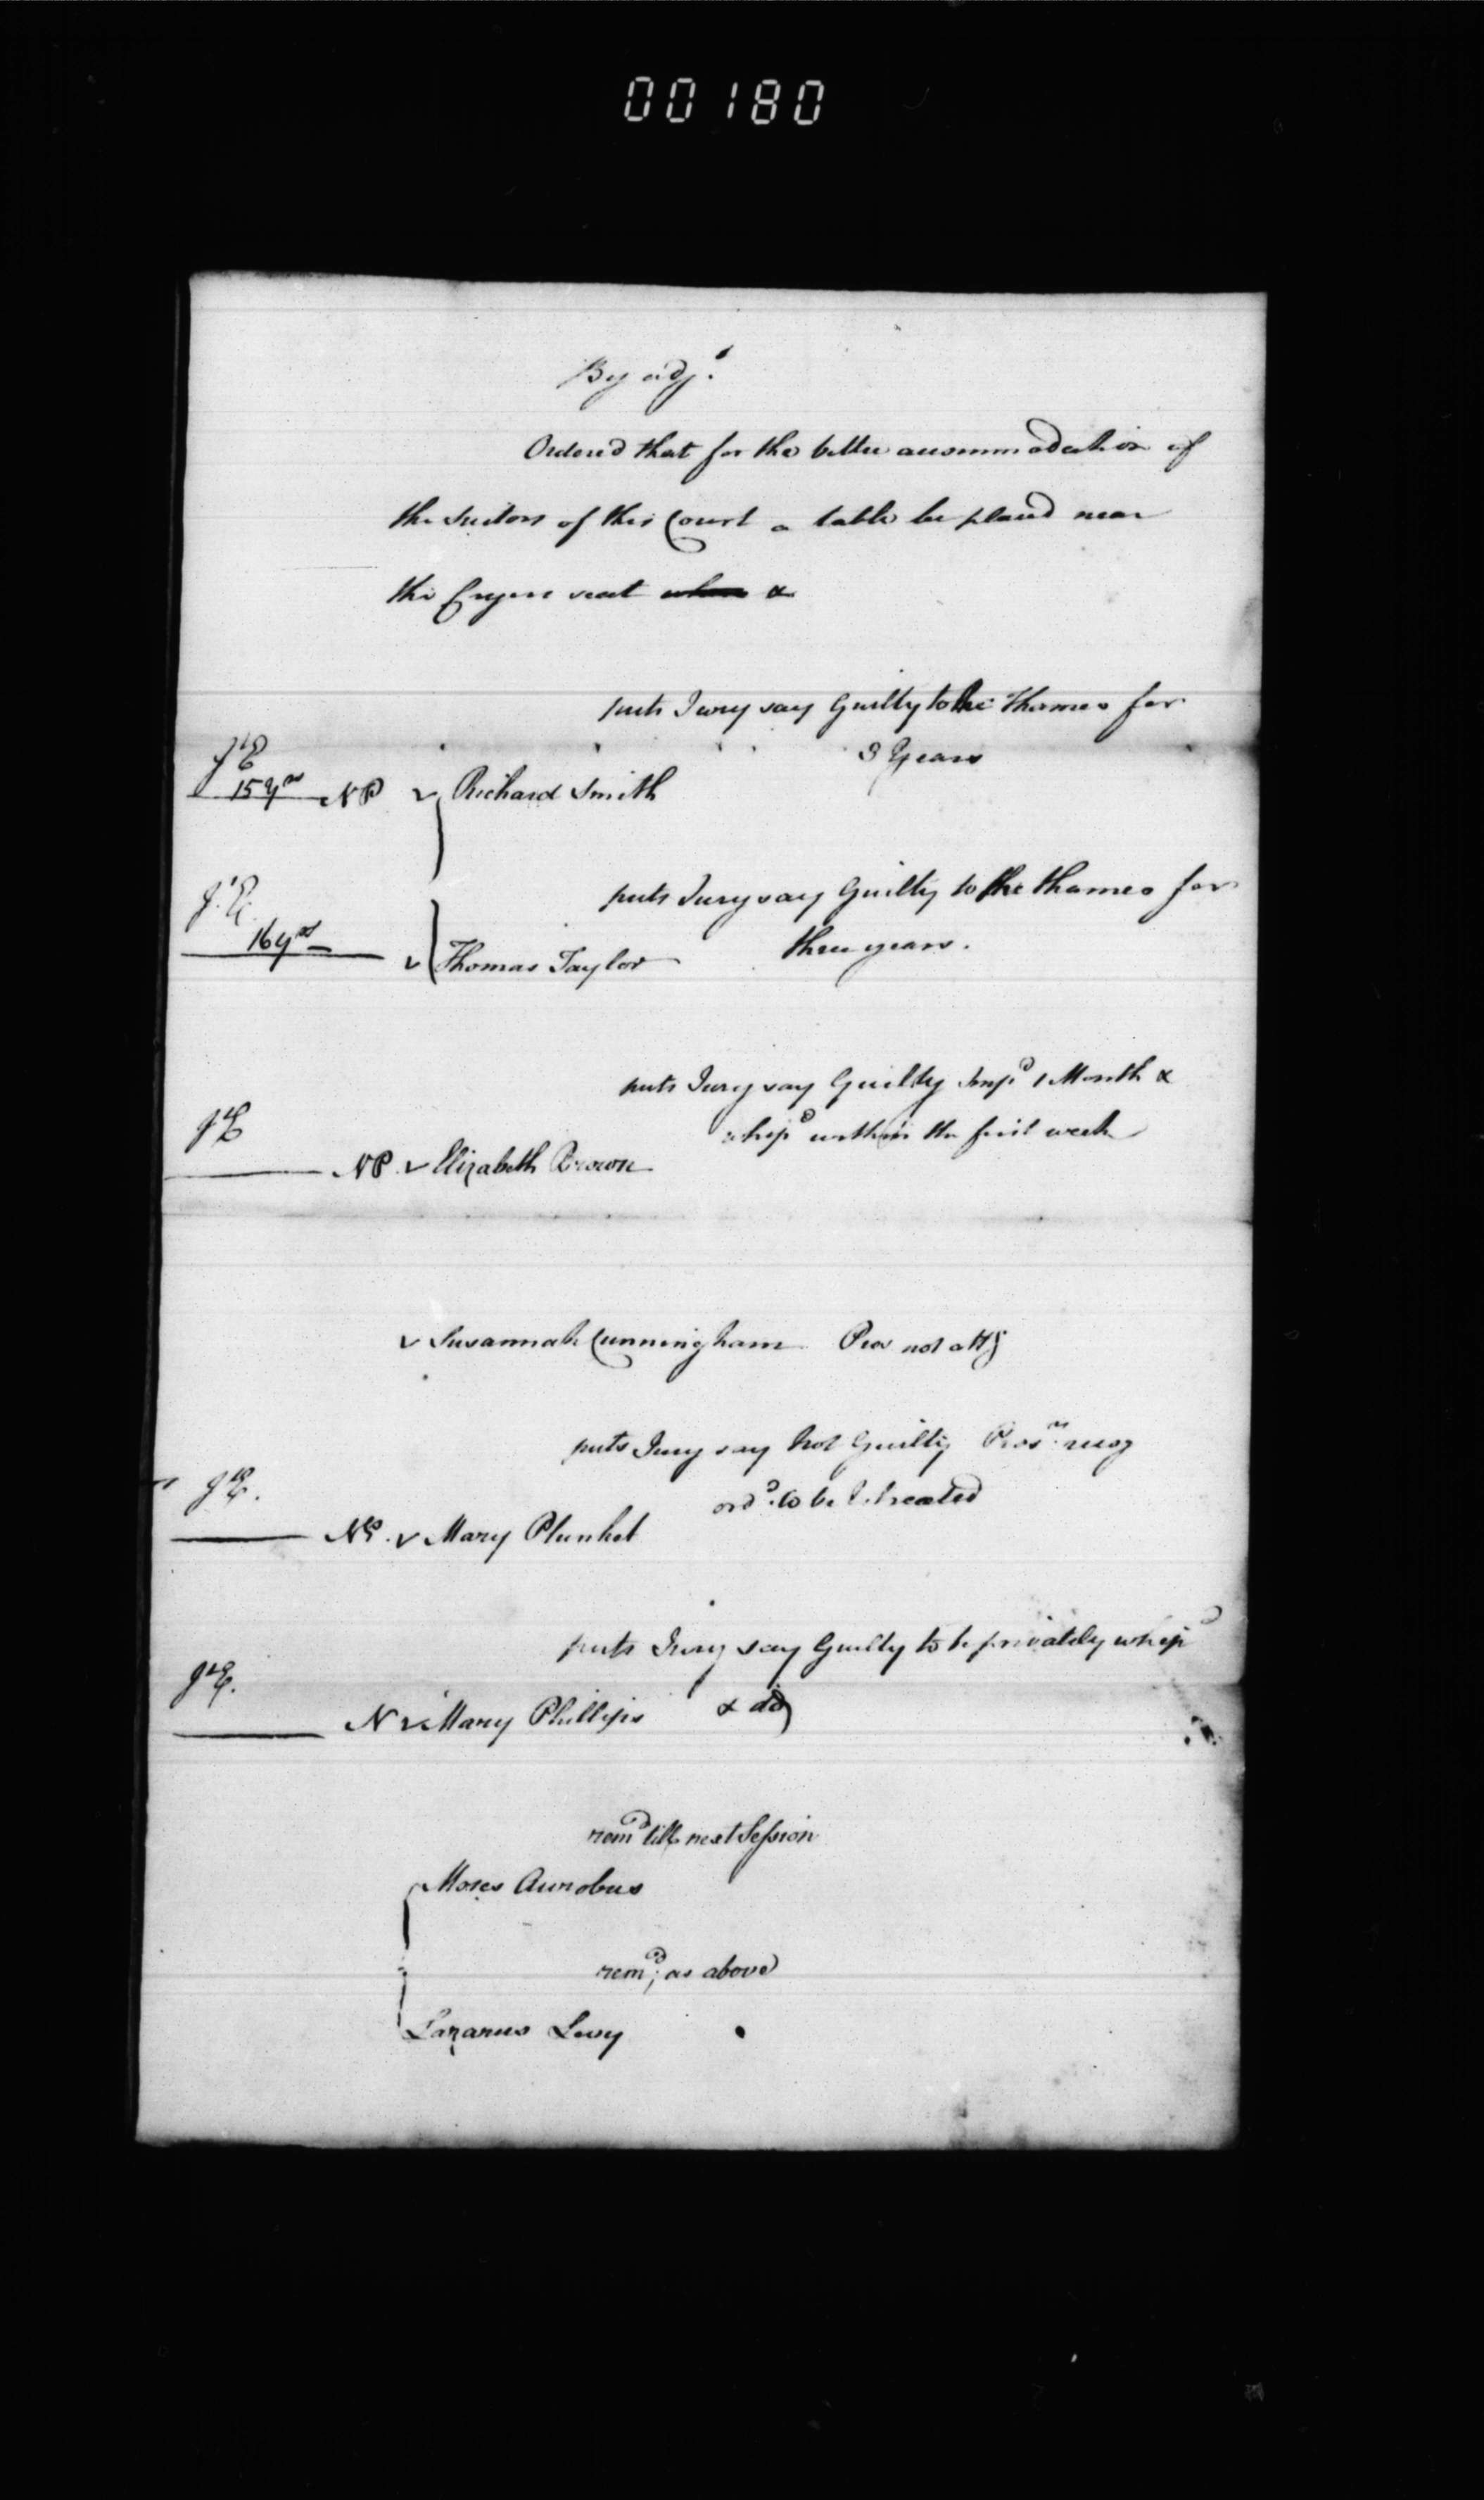 00180
By adj.t
Ordered that for the better accommodation of
the Suitors of this Court a table be placed near
the Cryers seat where &
puts Jury say Guilty to the Thames for
3 Years
15 yrs NP Richard Smith
puts Jury say Guilty to the Thames for
16 yrs three years.
Thomas Taylor
puts Jury say Guilty Impd 1 Month &
whipd within the first week
NP Elizabeth Brown
Susannah Cunningham Pros not attg
puts Jury say Not Guilty Prosrs recog
ordd. to be Estreated
NP. Mary Plunket
puts Jury say Guilty to be privately whipd
& disg
N Mary Phillips
remd till next Session
Moses Aurobus
remd; as above
Lazarus Levy